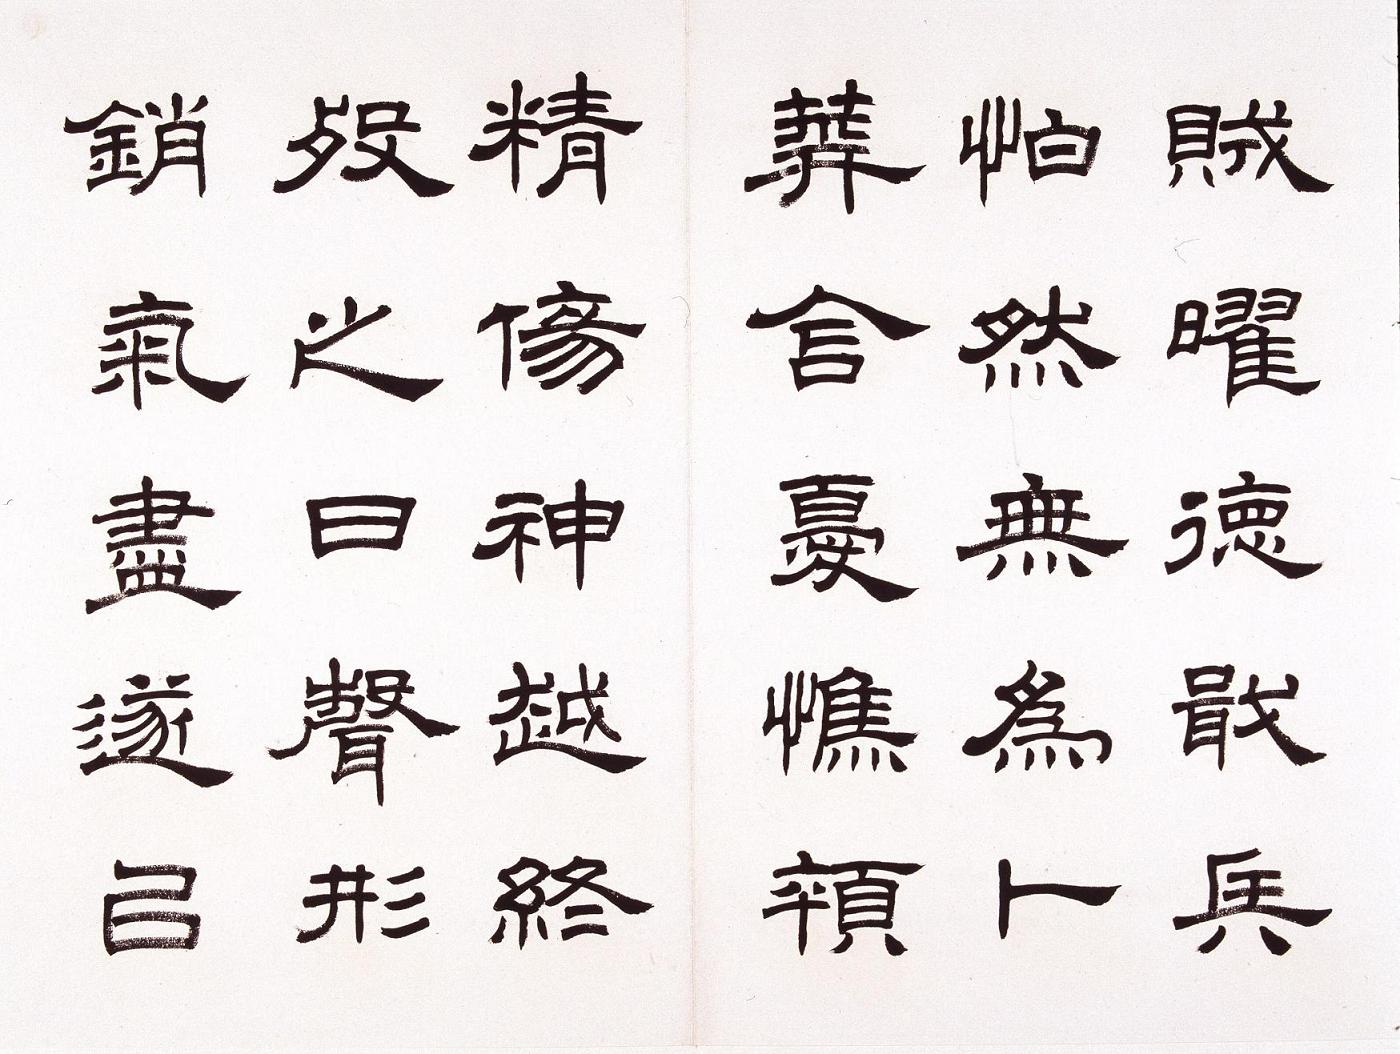 賊曜徳戢兵
怕然無為卜
葬含憂憔顇
精傷神越終
歿之日聲形
銷氣盡遂㠯